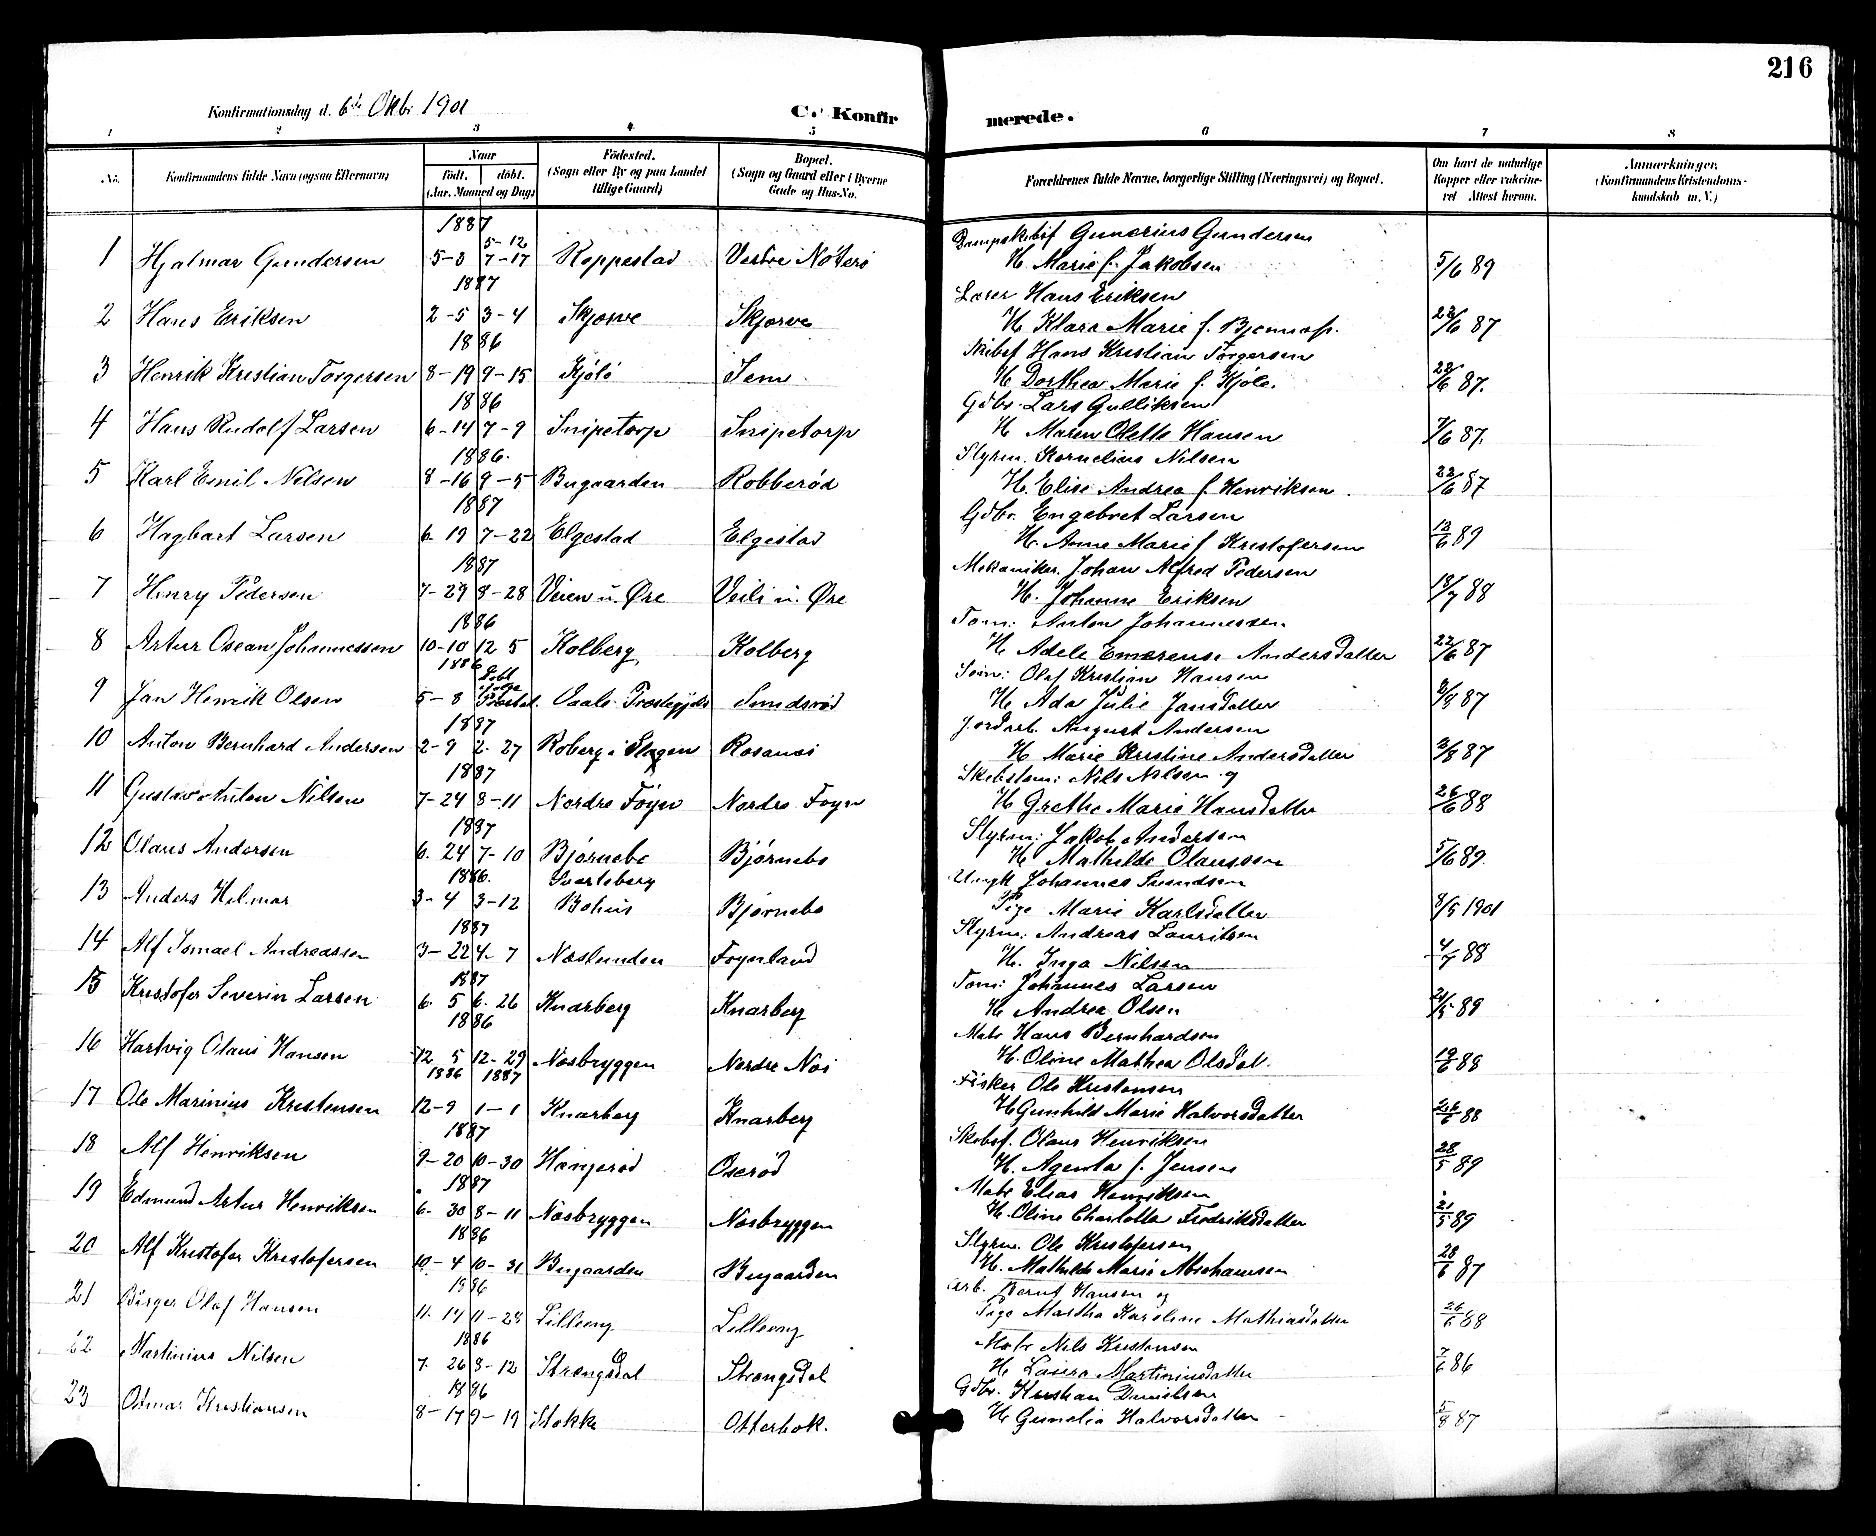 216
Konfirmationsdag d. 6te Oktbr 1901
C. Konfirmerede.
1 2 3 4 5 6 7 8
No.
Konfirmandens fulde Navn (ogsaa Efternavn)
Naar
født. døbt.
(Aar, Maaned og Dag)
Födested.
(Sogn eller By og paa Landet
tillige Gaard)
Bopæl.
(Sogn og Gaard eller i Byerne
Gade og Hus-No.
Forældrenes fulde Navne, borgerlige Stilling (Næringsvei) og Bopæl.
Om havt de naturlige
Kopper eller vakcine-
ret Attest herom.
Anmærkninger.
(Konfirmandens Kristendoms-
kundskab m. V.)
1887 5-12
Dampskibsf Gunerius Gundersen
1 Hjalmar Gundersen 5-3 7-17 Roppestad Vestre Nøterø H. Marie f. Jakobsen 5/6 89
1887
Lærer Hans Eriksen
2 Hans Eriksen 2-5 3-4 Skjærve Skjærve H Klara Marie f. 22/6 87
1886
Skibsf Hans Kristian Torgersen
3 Henrik Kristian Torgersen 8-19 9-15 Kjølø Sem H Dorthea Marie f. Kjøle. 22/6 87.
1886
Gdbr. Lars Gulliksen
4 Hans Rudolf Larsen 6-14 7-9 Snipetorp Snipetorp H Maren Olette Hansen 7/6 87.
1886.
Styrm. Kornelius Nilsen
5 Karl Emil Nilsen 8-16 9-5 Bugaarden Robberød H. Elise Andrea f Henriksen. 22/6 87
1887
Gdbr. Engebret Larsen
6 Hagbart Larsen 6-19 7-22 Elgestad Elgestad H. Anne Marie f Kristofersen 12/6 89
1887
Mekaniker Johan Alfred Pedersen
7 Henry Pedersen 7-29 8-28 Veien u. Øre Veili u. Øre H. Johanne Eriksen 18/7 88
1886
Tøm: Anton Johannessen
8 Artur Osean Johannessen 10-10 12 5 Kolberg Kolberg H Adele Emerense Andersdatter 22/6 87
1886 Døbt ifølge Præstat.
Søm: Olaf Kristian Hansen
9 Jan Henrik Olsen 5-8 Vaale Præstegjeld Sundsrød H Ada Julie Jansdatter 87
1887
Jordarb. August Andersen
10 Anton Bernhard Andersen 2-9 2-27 Roberg i Slagen Rosanes H Marie Kristine Andersdatter 87
1887
Skibstøm: Nils Nilsen og
11 Gustav Anton Nilsen 7-24 8-11 Nordre Føyn Nordre Foyn H Grethe Marie Hansdatter 26/6 88
1887
Styrm: Jakob Andersen
12 Olaus Andersen 6-24 7-10 Bjørnebo Bjørnebo H. Mathilde Olaussen 5/6 89.
1886. Svarteberg
Ungk Johannes Svendsen
13 Anders Hilmar 3-4 3-12 Bohus Bjørnebo Pige Marie Karlsdatter 8/5 1901
1887
Styrm: Andreas Lauritsen
14 Alf Ismael Andreassen 3-22 4-7 Næslunden Foynland H. Inga Nilsen 88
1887
Tøm: Johannes Larsen
15 Kristofer Severin Larsen 6. 5 6. 26 Knarberg Knarberg H Andrea Olsen 21/5 89
1886
Matr Hans Bernhardsen
16 Hartvig Olaus Hansen 12 5 12-29 Næsbryggen Nordre Næs H. Oline Mathea Olsdat. 19/6 88
1886 1887
Fisker Ole Kristensen
17 Ole Marinius Kristensen 12-9 1-1 Knarberg Knarberg H Gunhild Marie Halvorsdatter 26/6 88
1887
Skibsf. Olaus Henriksen
18 Alf Henriksen 9-20 10-30 Hængerød Oserød H. Agenta f. Jensen 28/5 89
1887
Matr Elias Henriksen
19 Edmund Artur Henriksen 6. 30 8-11 Næsbryggen Næsbryggen H. Oline Charlotte Fredriksdatter 21/5 89
1886
Styrm. Ole Kristofersen
20 Alf Kristofer Kristofersen 10-4 10-31 Bugaarden Bugaarden H. Mathilde Marie Abrahamsen 28/6 87
1886
Arb. Bernt Hansen og
21 Birger Olaf Hansen 11. 14 11-28 Lilleeng Lilleeng Pige Martha Karoline Mathiasdatter 26/6 88
1886
Matr Nils Kristensen
22 Martinius Nilsen 7. 26 8-12 Strengsdal Strengsdal H. Laura Martiniusdatter 7/6 86
1886
Gdbr. Kristian Danielsen
23 Osmar Kristiansen 8-17 9-19 Stokke Otterbok. H Gunelia Halvorsdatter 5/8 87